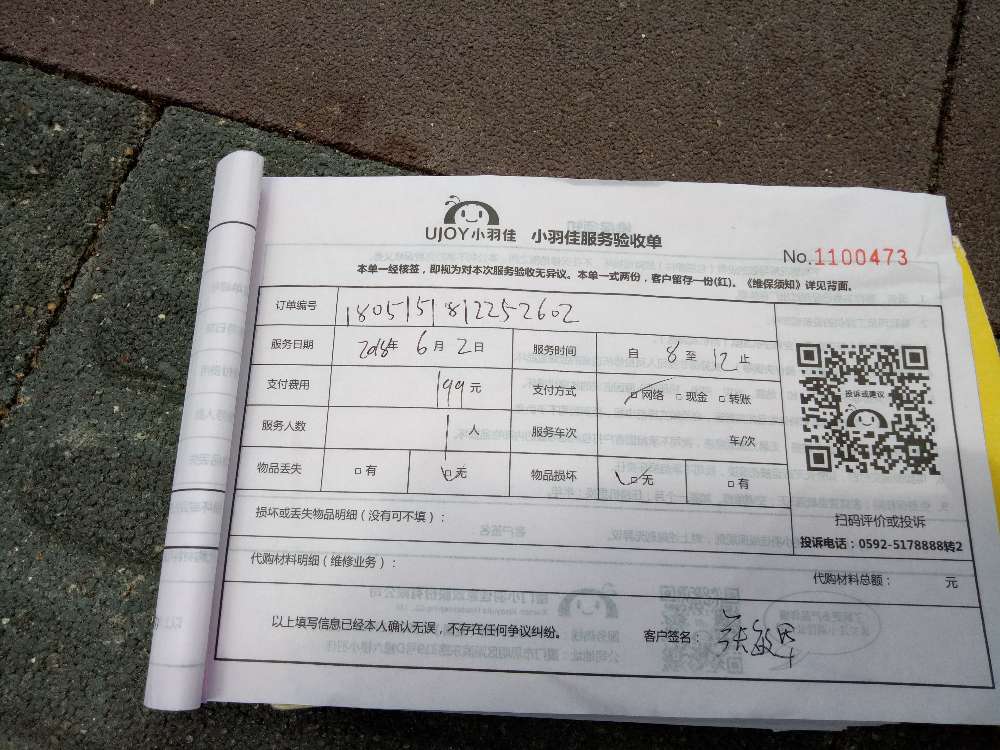 UJOY小羽佳 小羽佳服务验收单
No.1100473
本单一经核签，即视为对本次服务验收无异议。本单一式两份，客户留存一份(红)。《维保须知》详见背面。
订单编号 1805151812252602
服务日期 2018年 6月 2日 服务时间 自 8 至 12 止
支付费用 199元 支付方式 □网络 □现金 □转账
服务人数 1人 服务车次 车/次
物品丢失 □有 □无 物品损坏 □无 □有
投诉或建议
扫码评价或投诉
投诉电话：0592-5178888转2
损坏或丢失物品明细（没有可不填）：
代购材料明细（维修业务）：
代购材料总额： 元
以上填写信息已经本人确认无误，不存在任何争议纠纷。 客户签名：